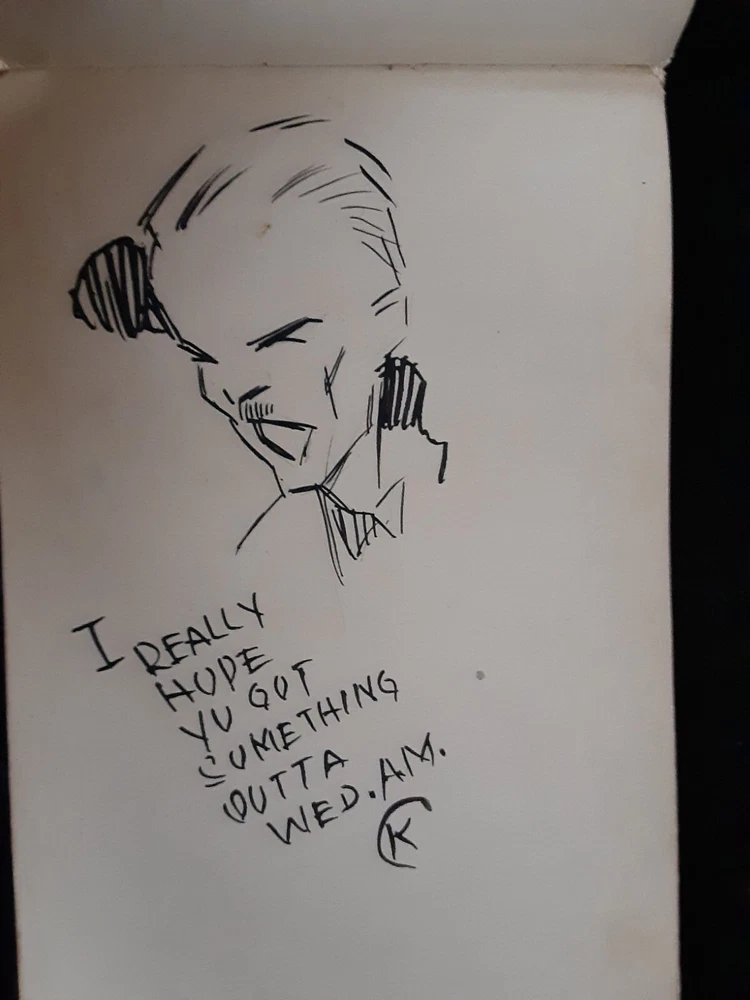 I REALLY
HOPE
YU GOT
SOMETHING
OUTTA
WED. AM.
K